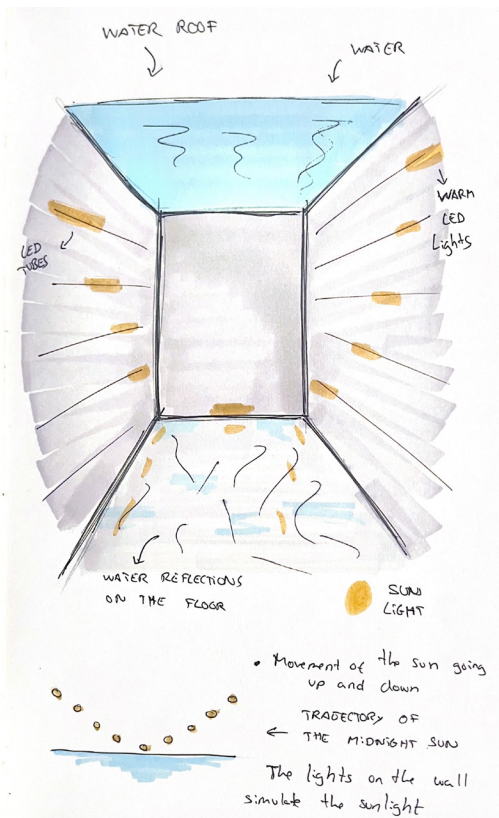 WATER ROOF
WATER
WARM
LED
Lights
LED
TUBES
WATER REFLECTIONS
ON THE FLOOR
SUN
LIGHT
• Movement of the sun going
up and down
← TRAJECTORY OF
THE MIDNIGHT SUN
The lights on the wall
simulate the sunlight